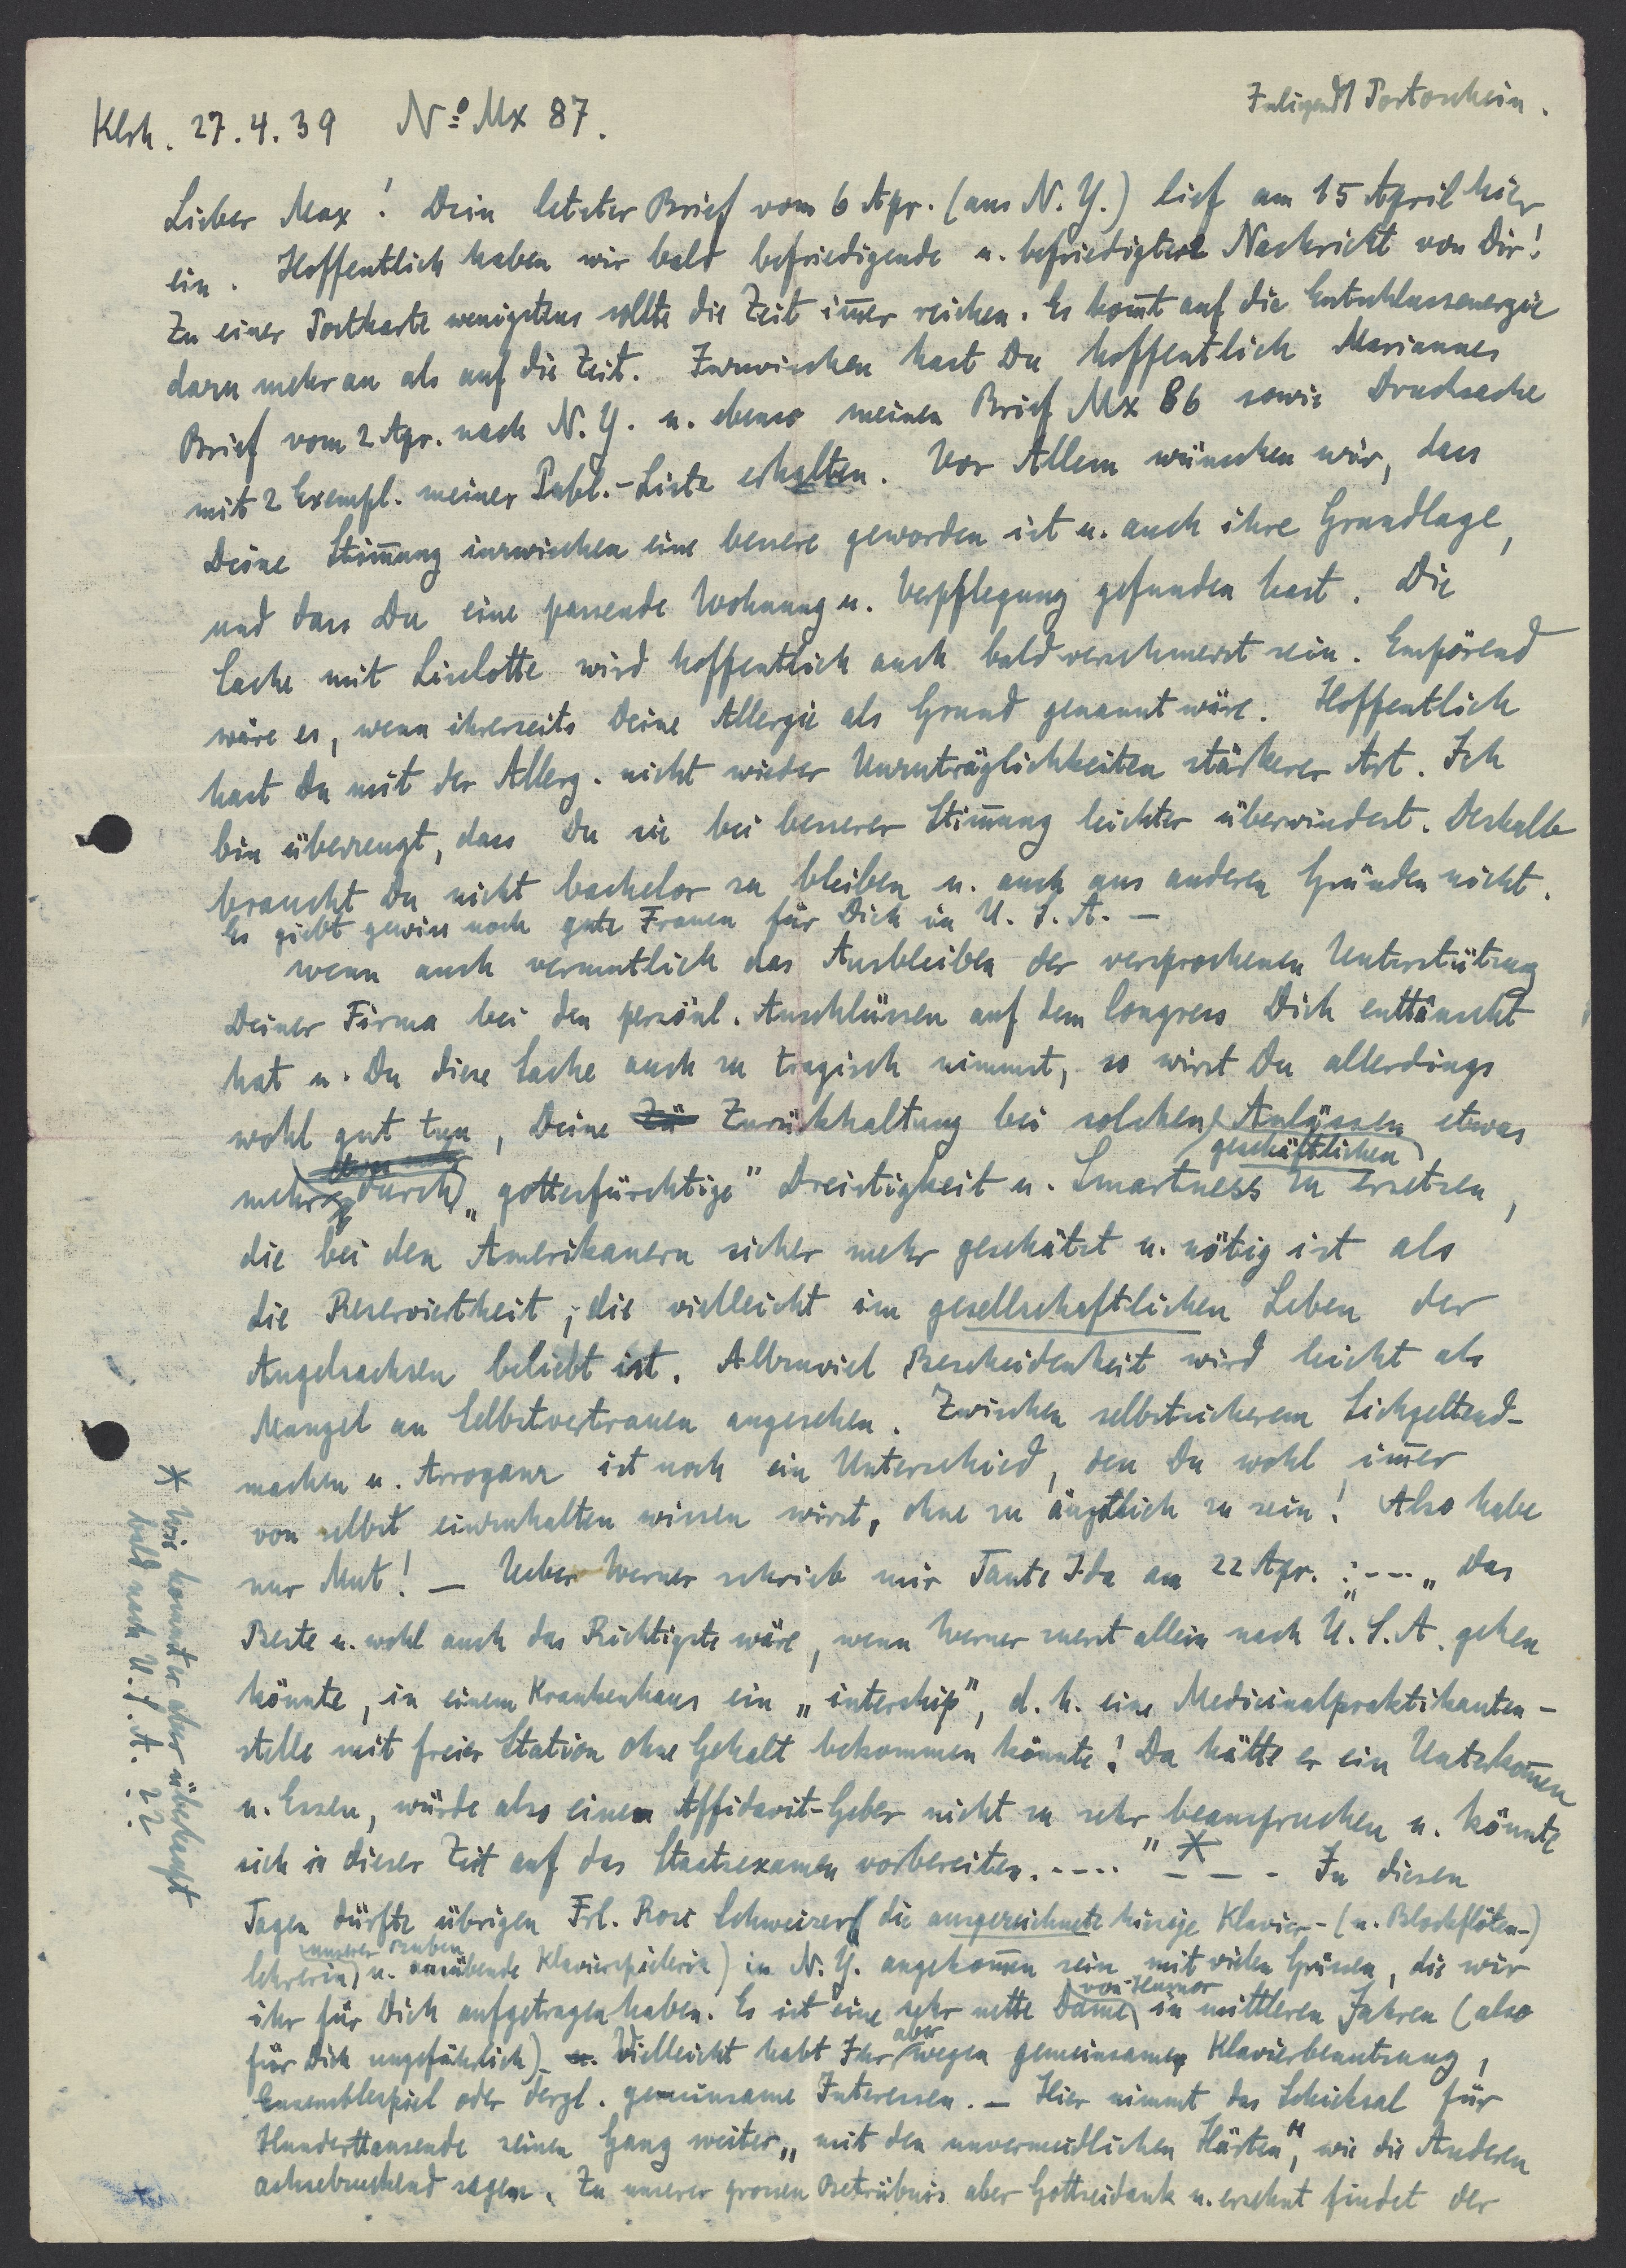 Inliegend 1 Portoschein.
Klrh. 27.4.39 No Mx 87.
Lieber Max! Dein letzter Brief vom 6 Apr. (aus N.Y.) lief am 15 April hier
ein. Hoffentlich haben wir bald befriedigende u. befriedigtere Nachricht von Dir!
Zu einer Postkarte wenigstens sollte die Zeit im̅er reichen. Es kom̅t auf die Entschlussenergie
dazu mehr an als auf die Zeit. Inzwischen hast Du hoffentlich Mariannes
Brief vom 2 Apr. nach N.Y. u. ebenso meinen Brief Mx 86 sowie Drucksache
mit 2 Exempl. meiner Publ.-Liste erhalten. Vor Allem wünschen wir, dass
Deine Stim̅ung inzwischen eine bessere geworden ist u. auch ihre Grundlage,
und dass Du eine passende Wohnung u. Verpflegung gefunden hast. Die
Sache mit Liselotte wird hoffentlich auch bald verschmerzt sein. Empörend
wäre es, wenn ihrerseits Deine Allergie als Grund genannt wäre. Hoffentlich
hast Du mit der Allerg. nicht wieder Unzuträglichkeiten stärkerer Art. Ich
bin überzeugt, dass Du sie bei besserer Stim̅ung leichter überwindest. Deshalb
brauchst Du nicht bachelor zu bleiben u. auch aus anderen Gründen nicht.
Es giebt gewiss noch gute Frauen für Dich in U.S.A. —
Wenn auch vermutlich das Ausbleiben der versprochenen Unterstützung
Deiner Firma bei den persönl. Anschlüssen auf dem Congress Dich enttäuscht
hat u. Du diese Sache auch zu tragisch nimmst, so wirst Du allerdings
wohl gut tun, Deine Zü Zurückhaltung bei solchen Anlässen etwas
geschäftlichen
mehr durch „gottesfürchtige" Dreistigkeit u. Smartness zu ersetzen,
die bei den Amerikanern sicher mehr geschätzt u. nötig ist als
die Reserviertheit, die vielleicht im gesellschaftlichen Leben der
Angelsachsen beliebt ist. Allzuviel Bescheidenheit wird leicht als
Mangel an Selbstvertrauen angesehen. Zwischen selbstsicherem Sichgeltend-
machen u. Arroganz ist noch ein Unterschied, den Du wohl im̅er
von selbst einzuhalten wissen wirst, ohne zu ängstlich zu sein! Also habe
nur Mut! — Ueber Werner schrieb mir Tante Ida am 22 Apr. : --- „Das
Beste u. wohl auch das Richtigste wäre, wenn Werner zuerst allein nach U.S.A. gehen
könnte, in einem Krankenhaus ein „intership", d.h. eine Medicinalpraktikanten-
stelle mit freier Station ohne Gehalt bekommen könnte! Da hätte er ein Unterkom̅en
u. Essen, würde also einen Affidavit-Geber nicht zu sehr beanspruchen u. könnte
sich in dieser Zeit auf das Staatsexamen vorbereiten. ----" * — — - In diesen
Tagen dürfte übrigen Frl. Rose Schweizer (die ausgezeichnete hiesige Klavier- (u. Blockflöten-)
unserer Buben
lehrerin) u. ausübende Klavierspielerin) in N.Y. angekom̅en sein mit vielen Grüssen, die wir
von Humor
ihr für Dich aufgetragen haben. Es ist eine sehr nette Dame in mittleren Jahren (also
aber
für Dich ungefährlich). Vielleicht habt Ihr wegen gemeinsamer Klavierbenutzung,
Ensemblespiel oder dergl. gemeinsame Interessen. — Hier nimmt das Schicksal für
Hunderttausende seinen Gang weiter, „mit den unvermeidlichen Härten", wie die Anderen
achselzuckend sagen. Zu unserer grossen Betrübnis aber Gottseidank u. ersehnt findet der
* Wie kommt er aber überhaupt
bald nach U.S.A. ??